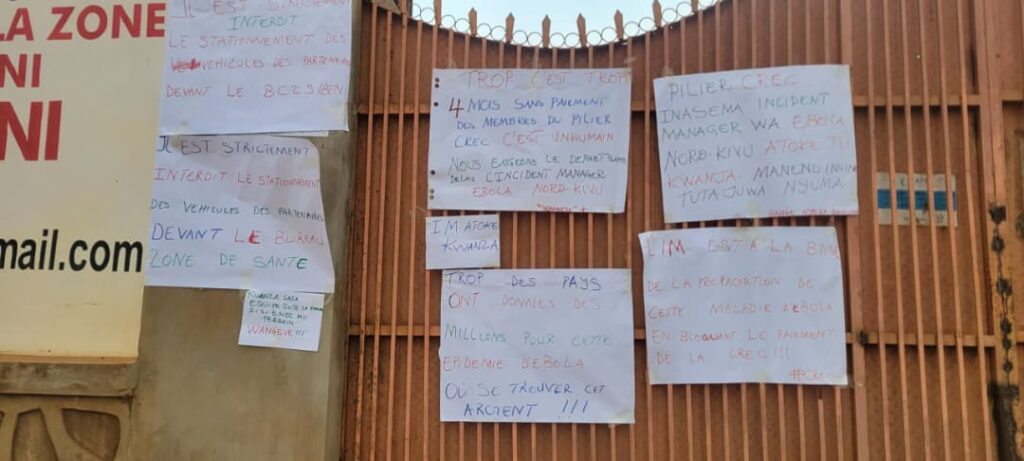 LA ZONE
NI
NI
mail.com
IL EST STRICTEMENT
INTERDIT
LE STATIONNEMENT DES
VEHICULES DES PARTENAIRES
DEVANT LE BCZS/BEN
IL EST STRICTEMENT
INTERDIT LE STATIONNEMENT
DES VEHICULES DES PARTENAIRES
DEVANT LE BUREAU
ZONE DE SANTE
KWANZA
TERRAIN
WANGEVE !!!
TROP C'EST TROP
4 MOIS SANS PAIEMENT
DES MEMBRES DU PILIER
CREC C'EST INHUMAIN
NOUS EXIGEONS LE DEPART SANS
DELAIS L'INCIDENT MANAGER
EBOLA NORD-KIVU
IM ATOKE
KWANZA
TROP DES PAYS
ONT DONNES DES
MILLIONS POUR CETTE
EPIDEMIE D'EBOLA
OÙ SE TROUVER CET
ARGENT !!!
PILIER CREC
INASEMA INCIDENT
MANAGER WA EBOLA
NORD-KIVU ATOKE TU
KWANZA. MANENO INGINE
TUTAJUWA NYUMA.
L'IM EST A LA BASE
DE LA PROPAGATION DE
CETTE MALADIE D'EBOLA
EN BLOQUANT LE PAIEMENT
DE LA CREC !!!